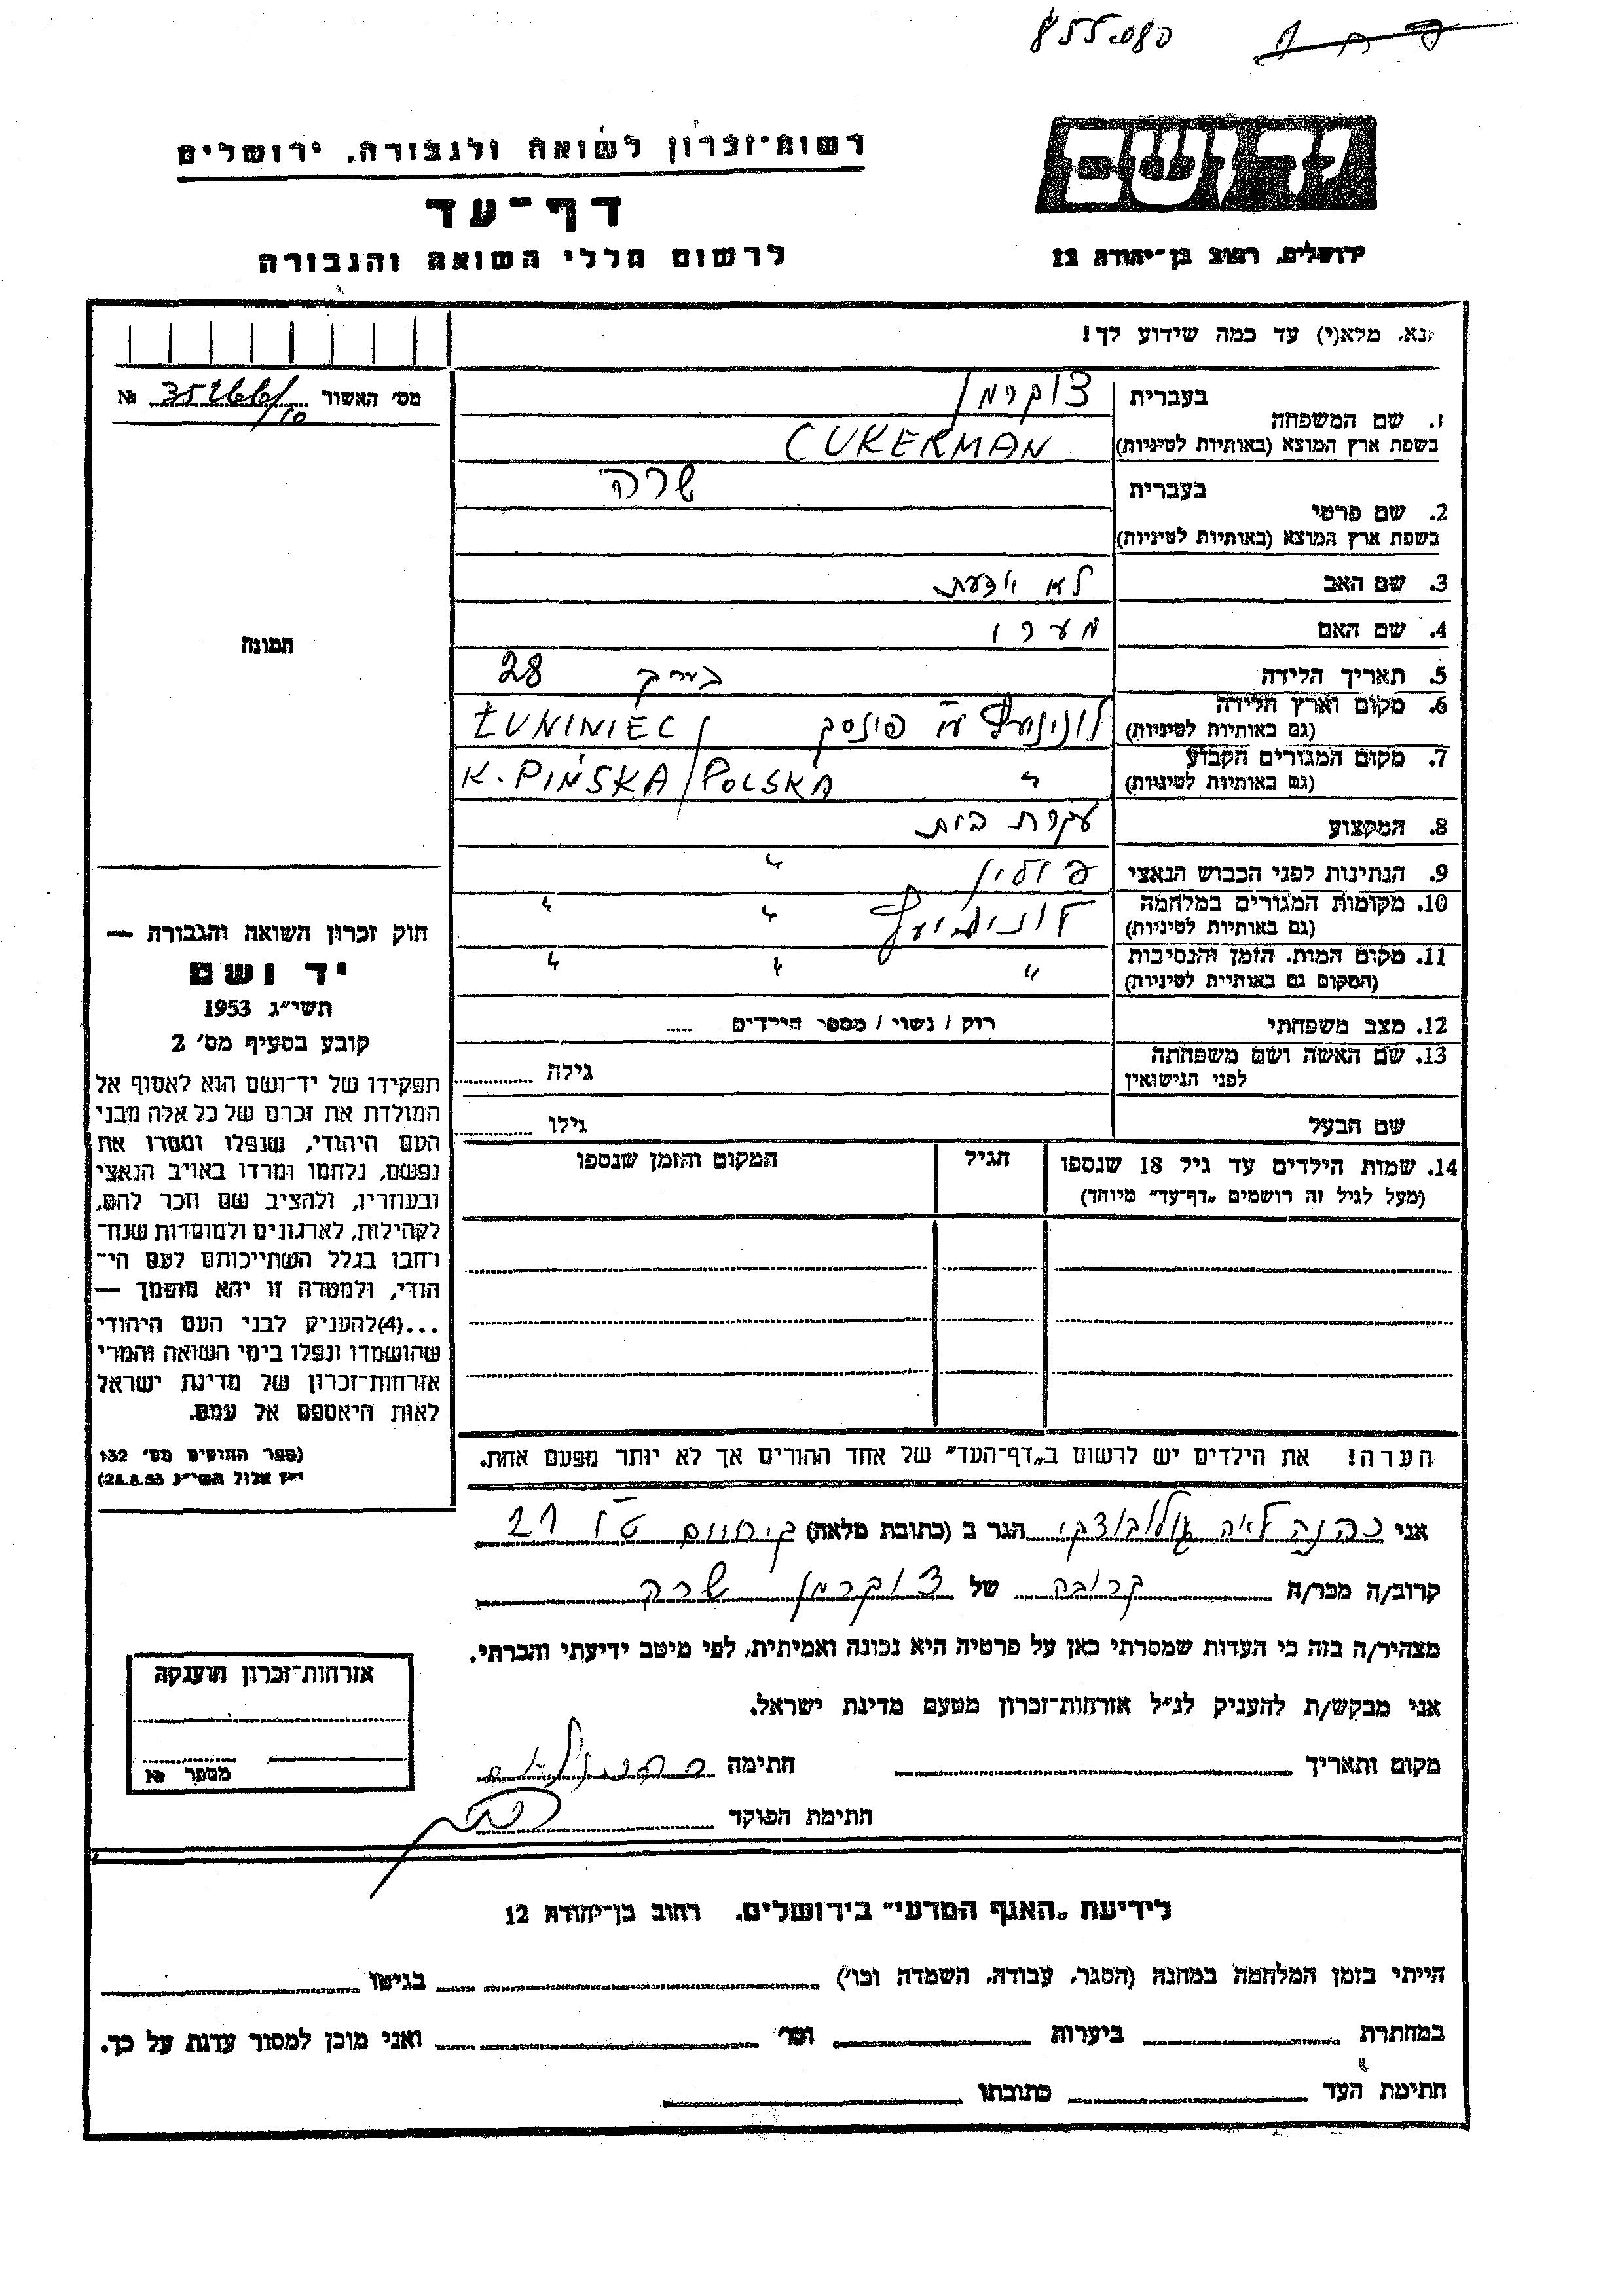 855.080
רשות־זכרון לשואה ולגבורה. ירושלים
דף־עד
לרשום חללי השואה והגבורה
יד ושם
ירושלים, רחוב בן־יהודה 12
נא, מלא(י) עד כמה שידוע לך!
מס׳ האשור № 
1. שם המשפחה
בעברית צוקרמן
בשפת ארץ המוצא (באותיות לטיניות) CUKERMAN
2. שם פרטי
בעברית שרה
בשפת ארץ המוצא (באותיות לטיניות)
3. שם האב לא יודעת
4. שם האם
5. תאריך הלידה בערך 28
6. מקום וארץ הלידה (גם באותיות לטיניות) לונינייץ ע״י פינסק ŁUNINIEC /
7. מקום המגורים הקבוע (גם באותיות לטיניות) " K. PIŃSKA / POLSKA
8. המקצוע עקרת בית
9. הנתינות לפני הכבוש הנאצי פולין "
10. מקומות המגורים במלחמה (גם באותיות לטיניות) לונינייץ " "
11. מקום המות, הזמן והנסיבות (המקום גם באותיות לטיניות) " " "
12. מצב משפחתי רוק / נשוי / מספר הילדים .....
13. שם האשה ושם משפחתה לפני הנישואין גילה
שם הבעל גילו
14. שמות הילדים עד גיל 18 שנספו הגיל המקום והזמן שנספו
(מעל לגיל זה רושמים „דף־עד״ מיוחד)
הערה! את הילדים יש לרשום ב„דף־העד״ של אחד ההורים אך לא יותר מפעם אחת.
תמונה
חוק זכרון השואה והגבורה —
יד ושם
תשי״ג 1953
קובע בסעיף מס׳ 2
תפקידו של יד־ושם הוא לאסוף אל
המולדת את זכרם של כל אלה מבני
העם היהודי, שנפלו ומסרו את
נפשם, נלחמו ומרדו באויב הנאצי
ובעוזריו, ולהציב שם וזכר להם,
לקהילות, לארגונים ולמוסדות שנח־
רחבו בגלל השתייכותם לעם הי־
הודי, ולמטרה זו יהא מוסמך —
...(4)להעניק לבני העם היהודי
שהושמדו ונפלו בימי השואה והמרי
אזרחות־זכרון של מדינת ישראל
לאות היאספם אל עמם.
(ספר החוקים מס׳ 132
י״ז אלול תשי״ג 28.8.53)
אני כהנה לאה הגר ב (כתובת מלאה) קרית חיים 21
קרוב/ה מכר/ה קרובה של צוקרמן שרה
מצהיר/ה בזה כי העדות שמסרתי כאן על פרטיה היא נכונה ואמיתית, לפי מיטב ידיעתי והכרתי.
אני מבקש/ת להעניק לנ״ל אזרחות־זכרון מטעם מדינת ישראל.
מקום ותאריך חתימה
חתימת הפוקד
אזרחות־זכרון הוענקה
מספר №
לידיעת „האגף המדעי״ בירושלים. רחוב בן־יהודה 12
הייתי בזמן המלחמה במחנה (הסגר, עבודה, השמדה וכו׳) בגיטו
במחתרת ביערות וכו׳ ואני מוכן למסור עדות על כך.
חתימת העד כתובתו